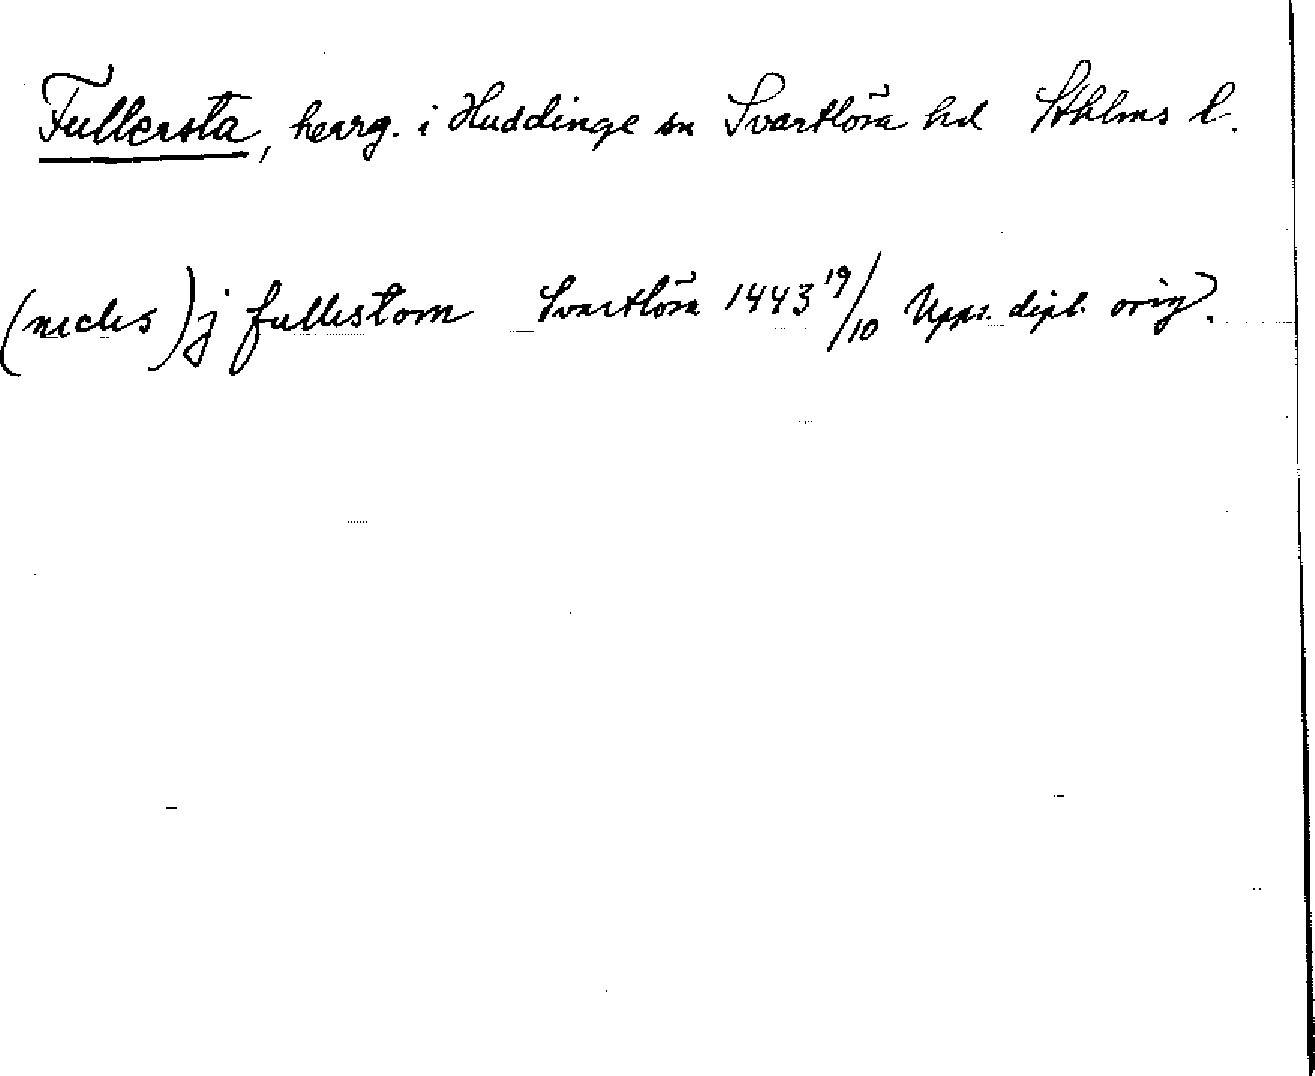 Fullersta, herrg. i Huddinge sn Svartlösa hd Sthlms l.
(nicles) j fullestom Svartlösa 1443 19/10 Upps. dipl. orig.